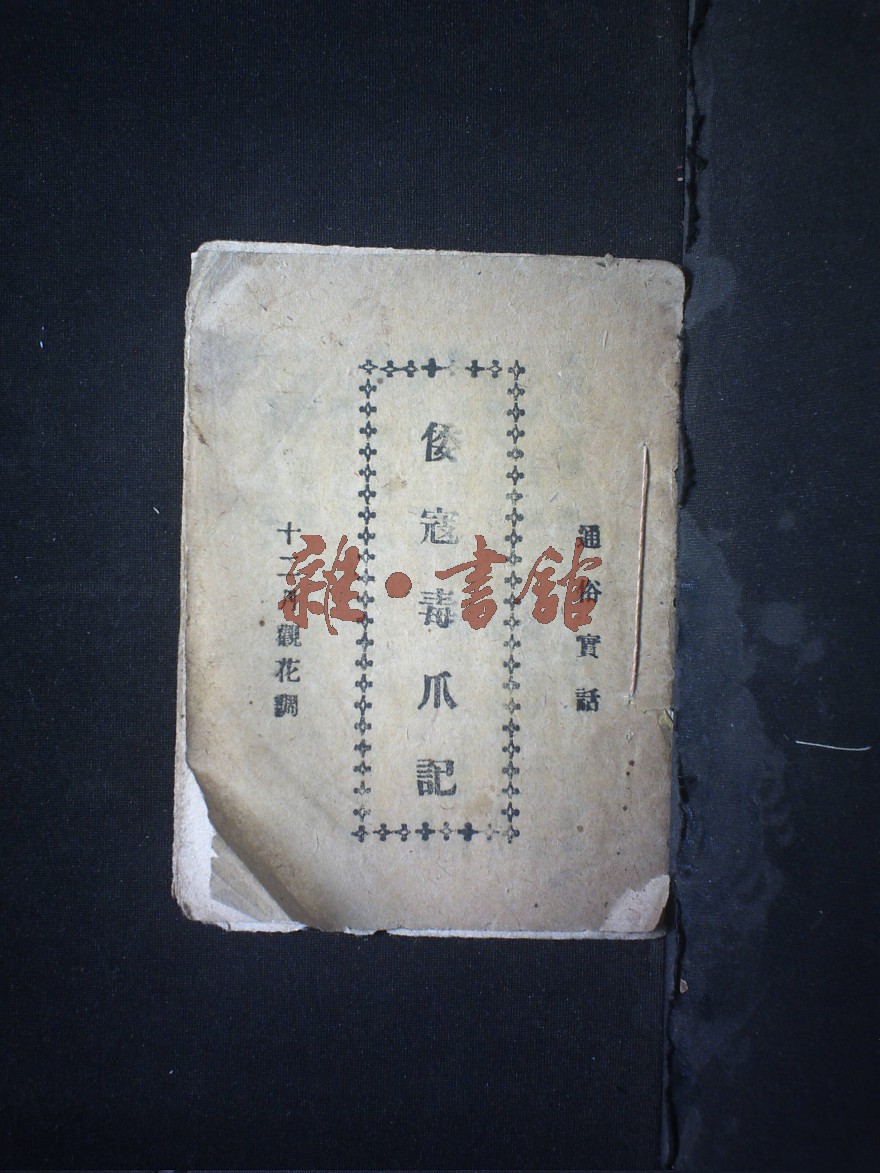 通俗實話
倭寇毒爪記
十二月觀花調
雜·書館